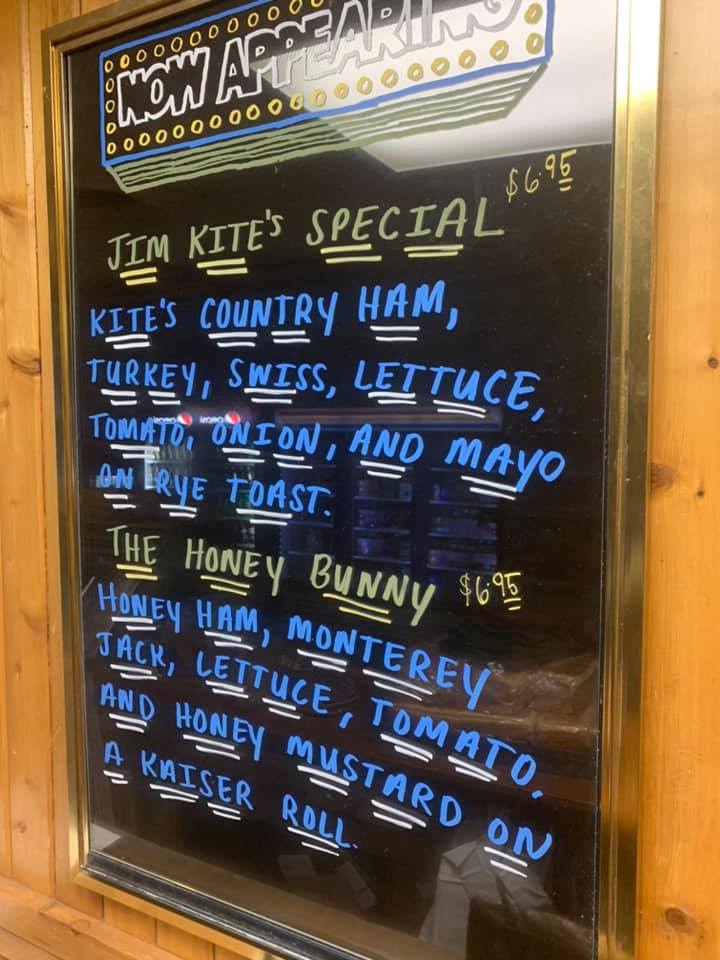 NOW APPEARING
$6.95
JIM KITE'S SPECIAL
KITE'S COUNTRY HAM,
TURKEY, SWISS, LETTUCE,
TOMATO, ONION, AND MAYO
ON RYE TOAST.
THE HONEY BUNNY $6.95
HONEY HAM, MONTEREY
JACK, LETTUCE, TOMATO,
AND HONEY MUSTARD ON
A KAISER ROLL.